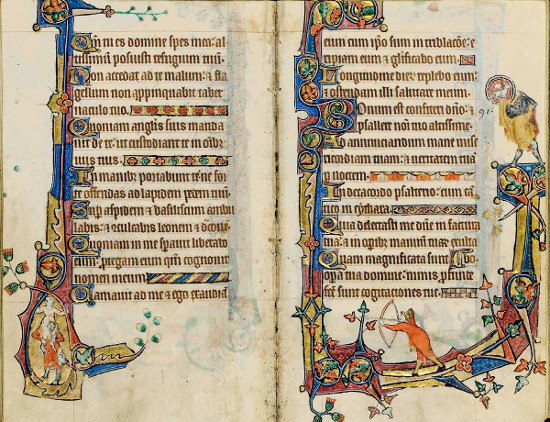 Qm̄ tu es domine spes mea: al
tissimū posuisti refugium tuū.
Non accedat ad te malum: & fla
gellum non appinquabit taber
naculo tuo.
Quoniam anglis suis manda
uit de te: ut custodiant te in oīb;
uiis tuis.
In manib; portabunt te: ne for
te offendas ad lapidem pedem tuū.
Sup aspidem & basiliscum ambu
labis: & culcabis leonem &
Quoniam in me spauit liberabo
eum: ꝓtegam eum qm̄ cognouit
nomen meum
Clamauit ad me & ego exaudiā
eum cum ipō sum in tribulacōe: e
eum & glificabo eum
Longitudine dieꝝ replebo eum:
& ostendam illi salutare meum.
Bonum est confiteri dn̄o: & 91.
psallere nōi tuo altissime.
Ad annunciandum mane mise
ricordiam tuam: & ueritatem tuā
noctem.
In decacordo psalterio: cum cā
tico in cythara.
Quia delectasti me dn̄e in factura
tua: & in opib; manuū tuaꝝ exulta
Quam magnificata sunt
opera tua domine: nimis ꝓfunde
sunt cogitaciones tue.